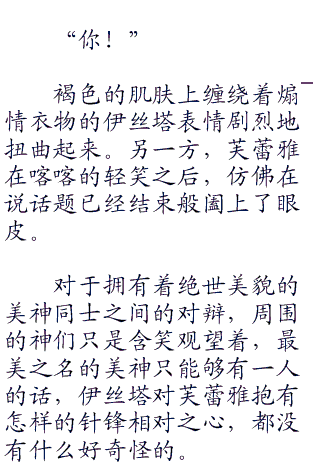 “你！”
褐色的肌肤上缠绕着煽
情衣物的伊丝塔表情剧烈地
扭曲起来。另一方，芙蕾雅
在喀喀的轻笑之后，仿佛在
说话题已经结束般阖上了眼
皮。
对于拥有着绝世美貌的
美神同士之间的对辩，周围
的神们只是含笑观望着，最
美之名的美神只能够有一人
的话，伊丝塔对芙蕾雅抱有
怎样的针锋相对之心，都没
有什么好奇怪的。